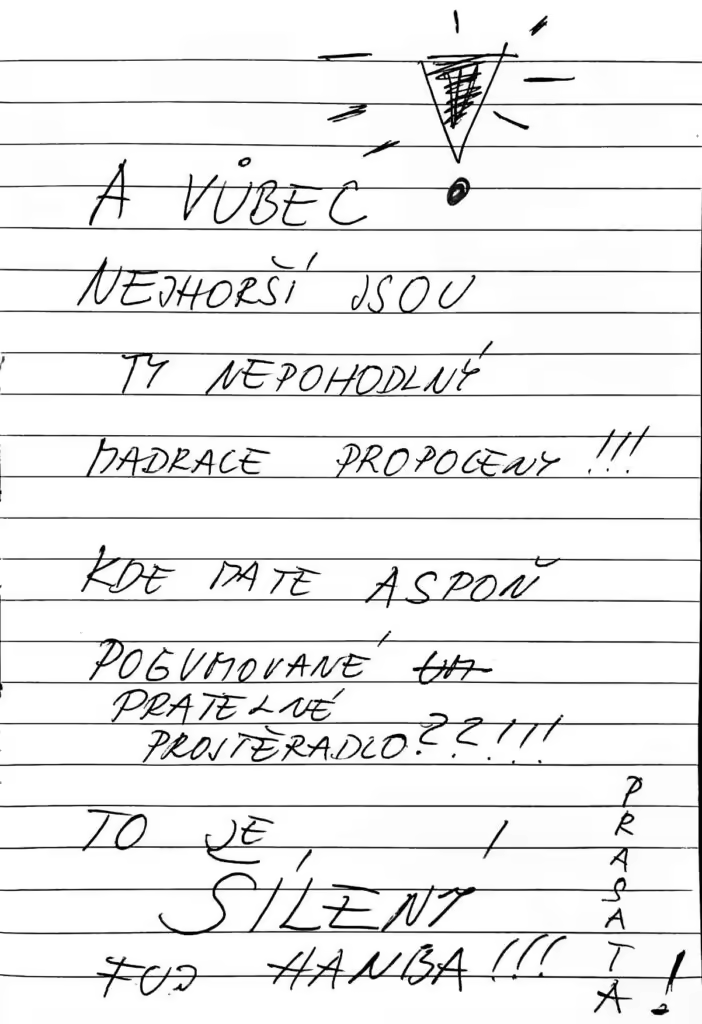 A VŮBEC
NEJHORŠÍ JSOU
TY NEPOHODLNÝ
MADRACE PROPOCENY !!!
KDE MATE ASPOŇ
POGUMOVANÉ
PRATELNÉ
PROSTĚRADLO??!!!
TO JE
ŠÍLENÝ
FUJ HANBA!!!
PRASATA!